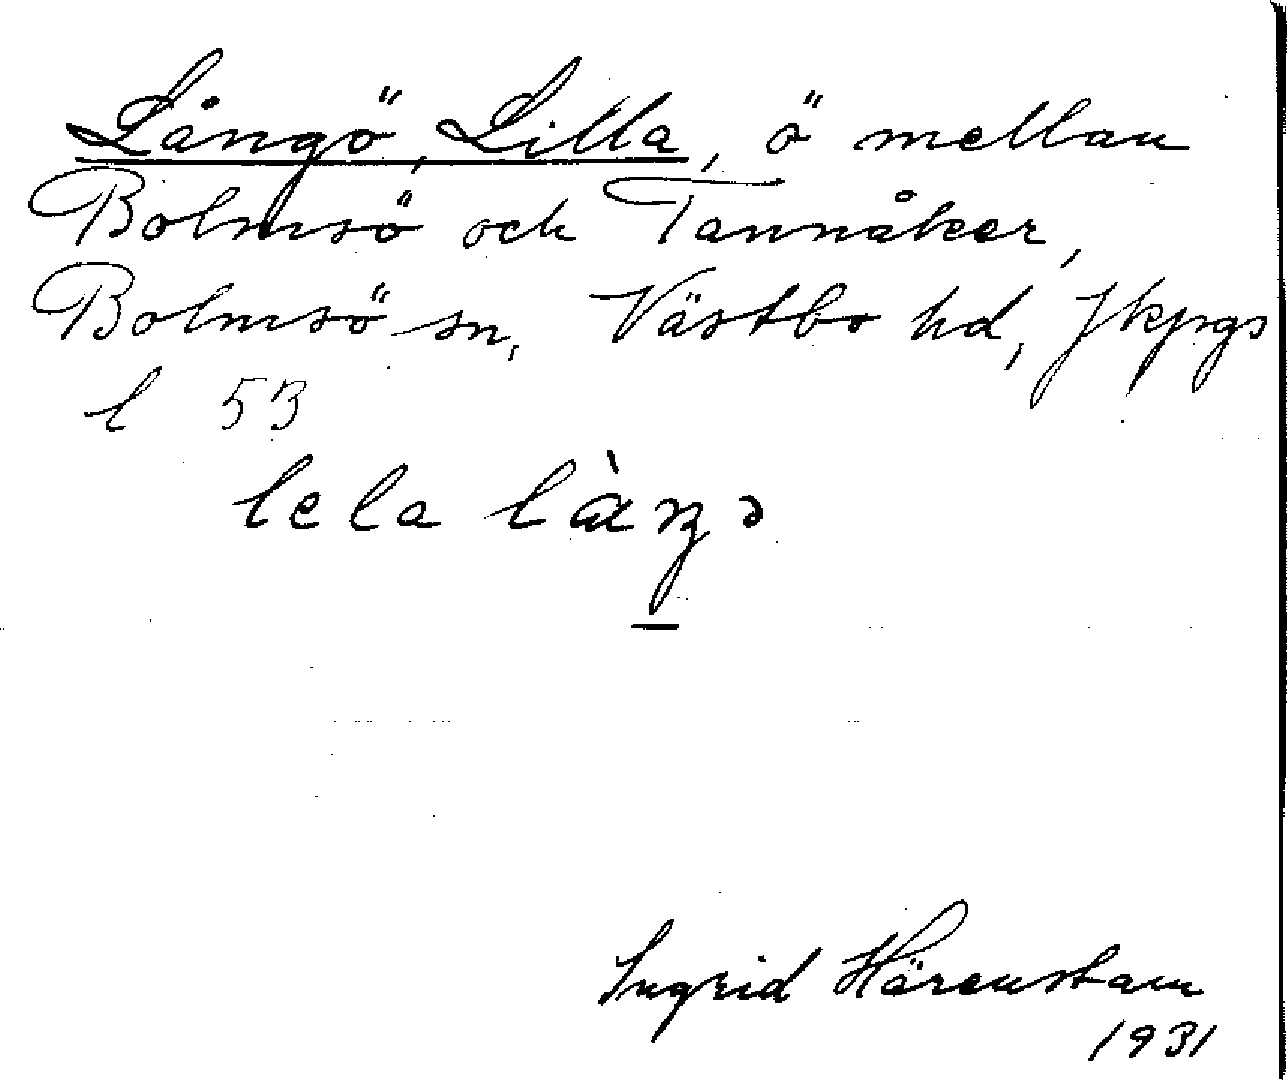 Långö, Lilla, ö mellan
Bolmsö och Tannåker,
Bolmsö sn, Västbo hd, Jkpgs
l 53
lela làŋə
Ingrid Härenstam
1931